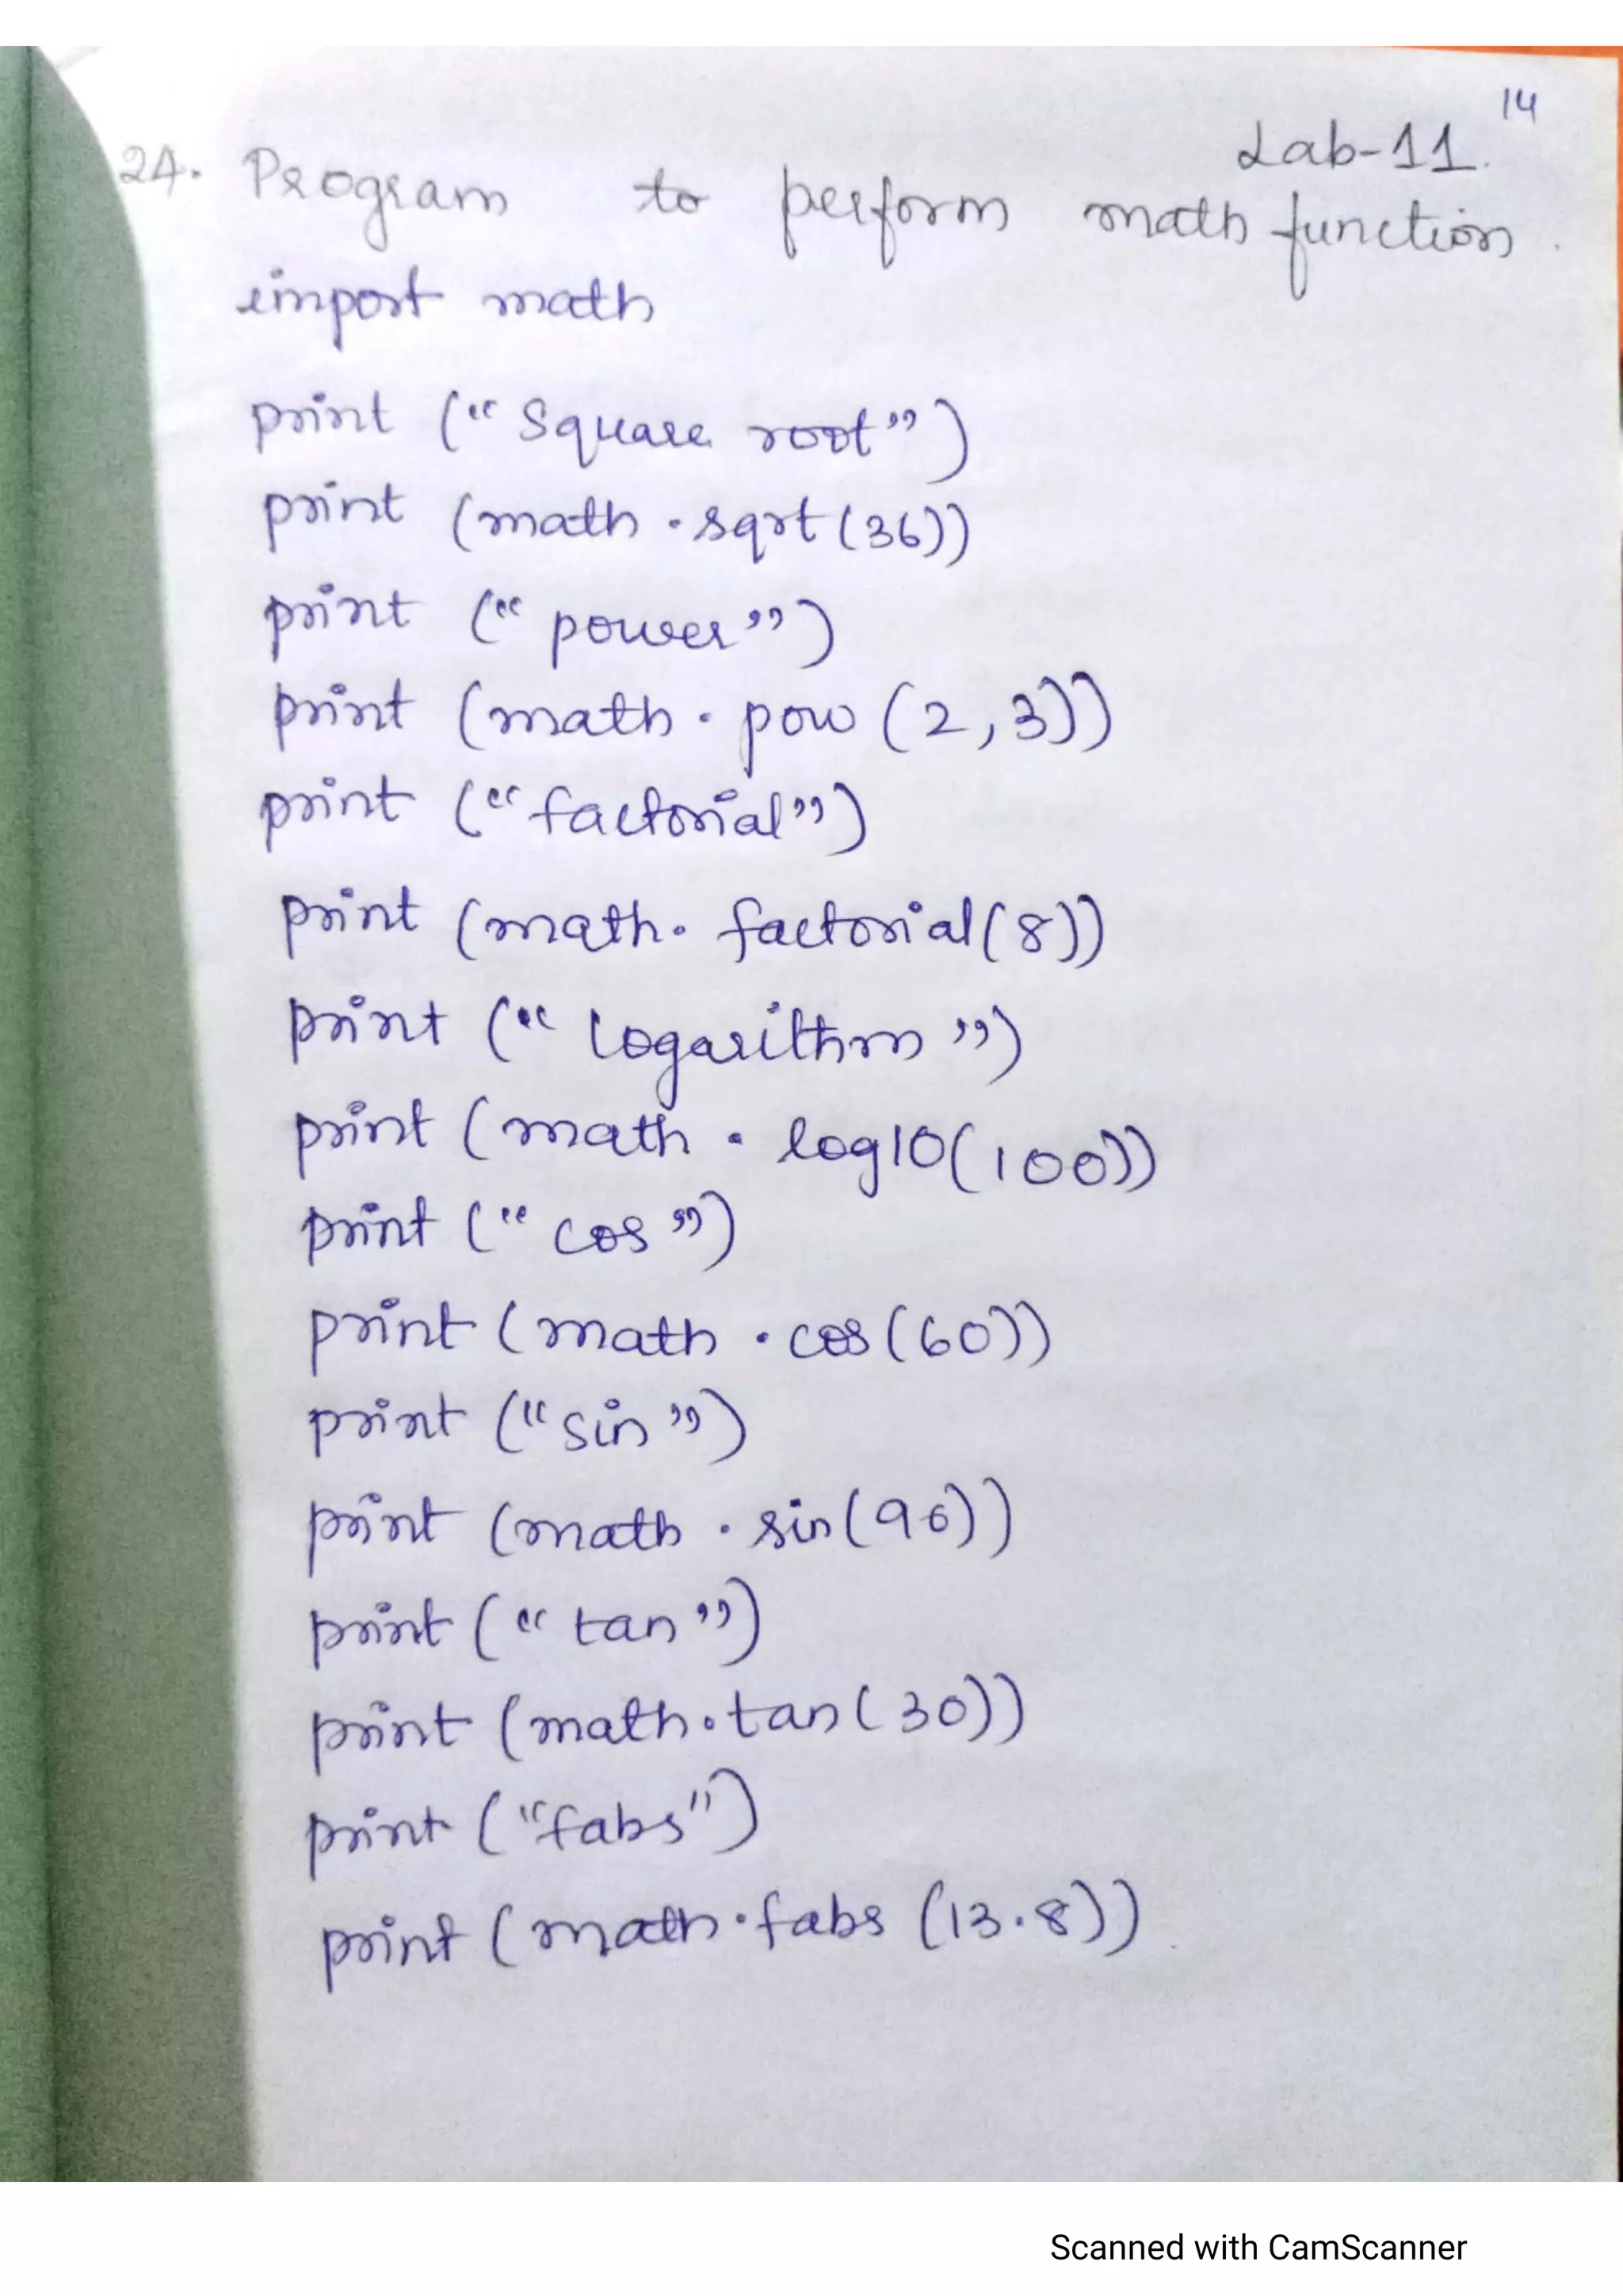 14
Lab-11.
24. Program to perform math function.
import math
print (“Square root”)
print (math.sqrt(36))
print (“power”)
print (math.pow(2,3))
print (“factorial”)
print (math.factorial(8))
print (“logarithm”)
print (math.log10(100))
print (“cos”)
print (math.cos(60))
print (“sin”)
print (math.sin(90))
print (“tan”)
print (math.tan(30))
print (“fabs")
print (math.fabs(13.8))
Scanned with CamScanner